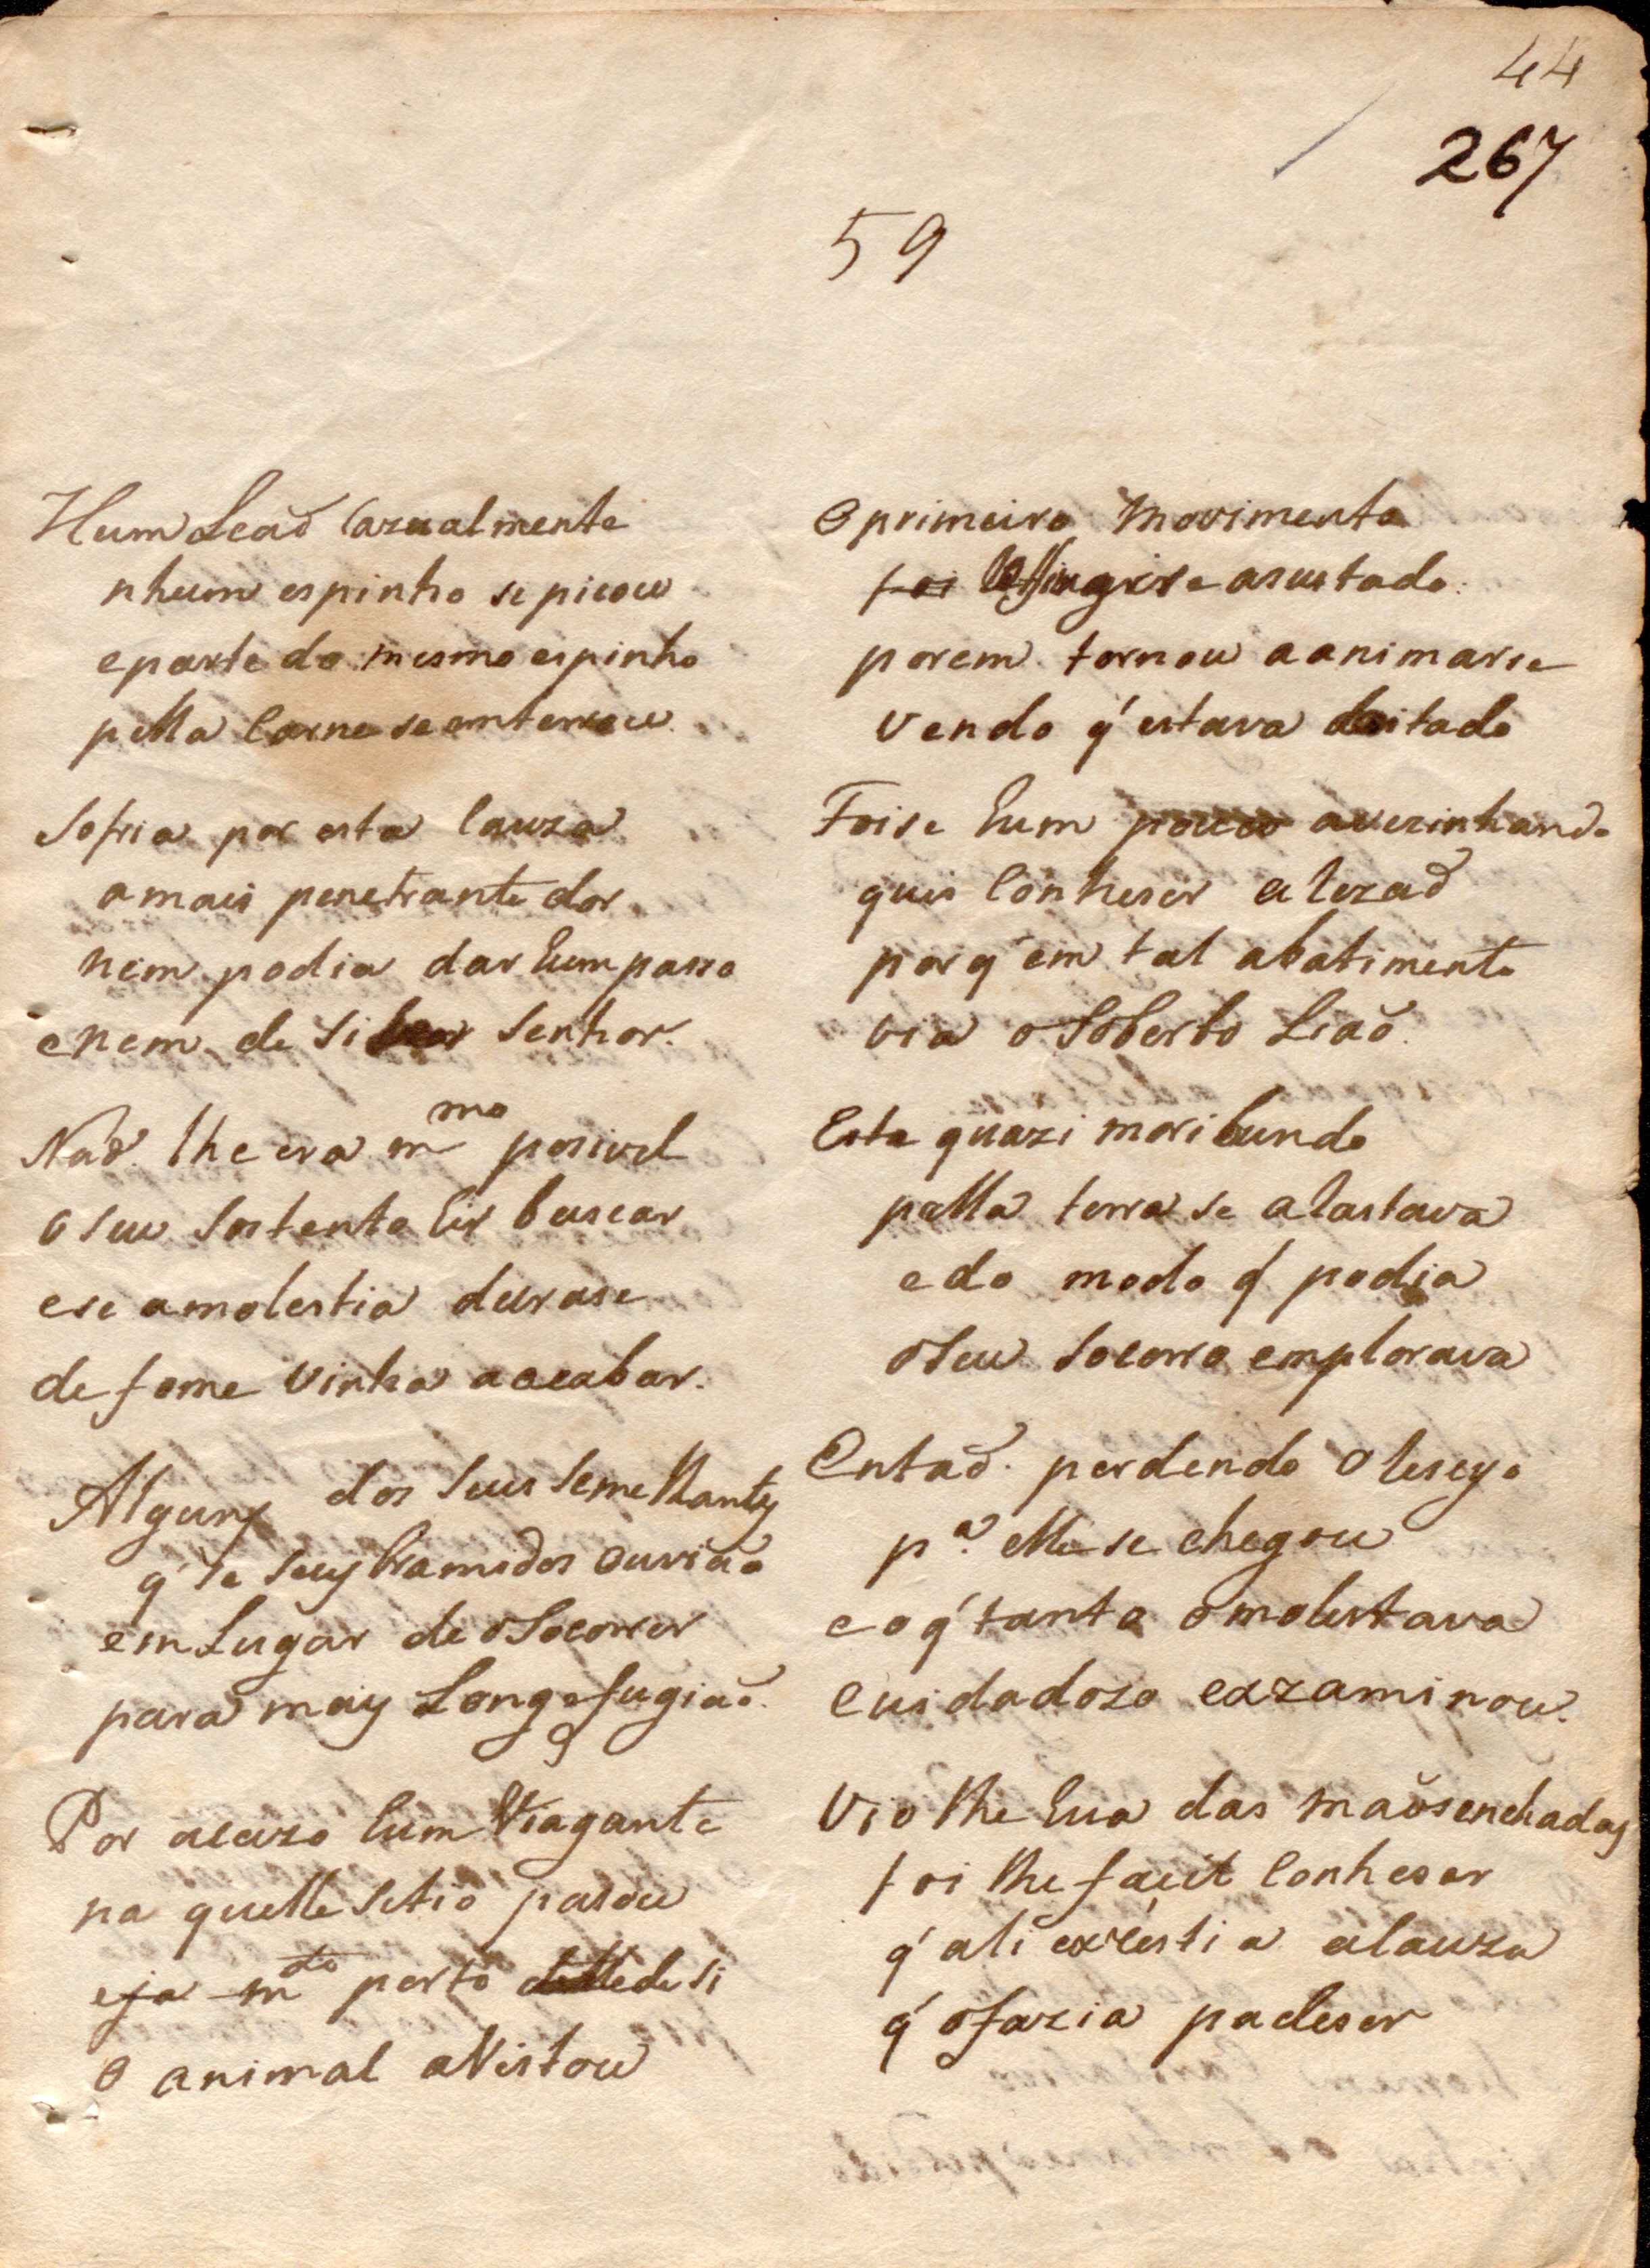 44
267
59
Hum Leaõ Cazualmente
nhum espinho se picou
eparte do mesmo espinho
pella Carne se enterrou.
Sofria por esta Cauza
amais penetrante dor
nem podia dar hum passo
enem de Si Senhor.
Naõ lhe era m^mo posivel
o seu Sustento hir buscar
ese amolestia durase
de fome vinha aacabar.
Alguns dos seus Semelhantes
q' se seus bramidos ouviaõ
em Lugar de o Socorrer
para mais Longe fugiaõ.
Por acazo hum Viagante
na quelle Sitio pasou
eja m^to perto de si
o animal avistou
O primeiro Movimento
foi asustado.
porem tornou a animarse
vendo q' estava deitado
Foise hum pouco avezinhando
quis Conheser a Cezaõ
porq' em tal abatimento
via o Soberbo Liaõ.
Este quazi moribundo
pella terra se a Rastava
e do modo q' podia
o seu Socorro emplorava
Entaõ perdendo o Reseyo
p^a elle se chegou
e oq' tanto o molestava
Cuidadozo exzaminou.
Vio lhe hua das maõs enchadas
foi lhe facil Conheser
q' ali exzestia a Cauza
q' o fazia padeser